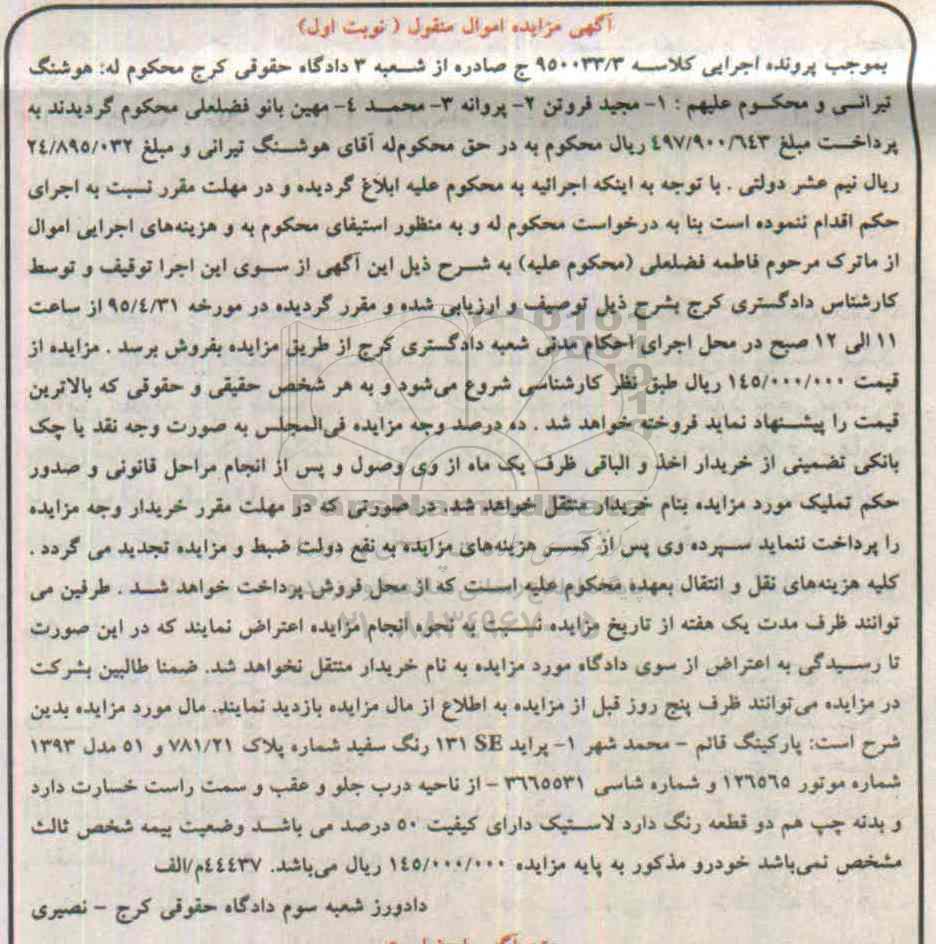 آگهی مزایده اموال منقول ( نوبت اول)
بموجب پرونده اجرایی کلاسه ۹۵۰۰۳۳/۳ ج صادره از شعبه ۳ دادگاه حقوقی کرج محکوم له: هوشنگ
تیرانی و محکوم علیهم : ۱- مجید فروتن ۲- پروانه ۳- محمد ٤- مهین بانو فضلعلی محکوم گردیدند به
پرداخت مبلغ ٤٩٧/٩٠٠/٦٤٣ ریال محکوم به در حق محکوم‌له آقای هوشنگ تیرانی و مبلغ ٢٤/٨٩٥/٠٣٢
ریال نیم عشر دولتی . با توجه به اینکه اجرائیه به محکوم علیه ابلاغ گردیده و در مهلت مقرر نسبت به اجرای
حکم اقدام ننموده است بنا به درخواست محکوم له و به منظور استیفای محکوم به و هزینه‌های اجرایی اموال
از ماترک مرحوم فاطمه فضلعلی (محکوم علیه) به شرح ذیل این آگهی از سوی این اجرا توقیف و توسط
کارشناس دادگستری کرج بشرح ذیل توصیف و ارزیابی شده و مقرر گردیده در مورخه ٩٥/٤/٣١ از ساعت
۱۱ الی ۱۲ صبح در محل اجرای احکام مدنی شعبه دادگستری کرج از طریق مزایده بفروش برسد . مزایده از
قیمت ١٤٥/٠٠٠/٠٠٠ ریال طبق نظر کارشناسی شروع می‌شود و به هر شخص حقیقی و حقوقی که بالاترین
قیمت را پیشنهاد نماید فروخته خواهد شد . ده درصد وجه مزایده فی‌المجلس به صورت وجه نقد یا چک
بانکی تضمینی از خریدار اخذ و الباقی ظرف یک ماه از وی وصول و پس از انجام مراحل قانونی و صدور
حکم تملیک مورد مزایده بنام خریدار منتقل خواهد شد. در صورتی که در مهلت مقرر خریدار وجه مزایده
را پرداخت ننماید سپرده وی پس از کسر هزینه‌های مزایده به نفع دولت ضبط و مزایده تجدید می گردد .
کلیه هزینه‌های نقل و انتقال بعهده محکوم علیه است که از محل فروش پرداخت خواهد شد . طرفین می
توانند ظرف مدت یک هفته از تاریخ مزایده نسبت به نحوه انجام مزایده اعتراض نمایند که در این صورت
تا رسیدگی به اعتراض از سوی دادگاه مورد مزایده به نام خریدار منتقل نخواهد شد. ضمنا طالبین بشرکت
در مزایده می‌توانند ظرف پنج روز قبل از مزایده به اطلاع از مال مزایده بازدید نمایند. مال مورد مزایده بدین
شرح است: پارکینگ قائم - محمد شهر ۱- پراید SE ۱۳۱ رنگ سفید شماره پلاک ۷۸۱/۲۱ و ۵۱ مدل ۱۳۹۳
شماره موتور ١٢٦٥٦٥ و شماره شاسی ٣٦٦٥٥٣١ - از ناحیه درب جلو و عقب و سمت راست خسارت دارد
و بدنه چپ هم دو قطعه رنگ دارد لاستیک دارای کیفیت ۵۰ درصد می باشد وضعیت بیمه شخص ثالث
مشخص نمی‌باشد خودرو مذکور به پایه مزایده ١٤٥/٠٠٠/٠٠٠ ریال می‌باشد. ٤٤٤٣٧م/الف
دادورز شعبه سوم دادگاه حقوقی کرج - نصیری